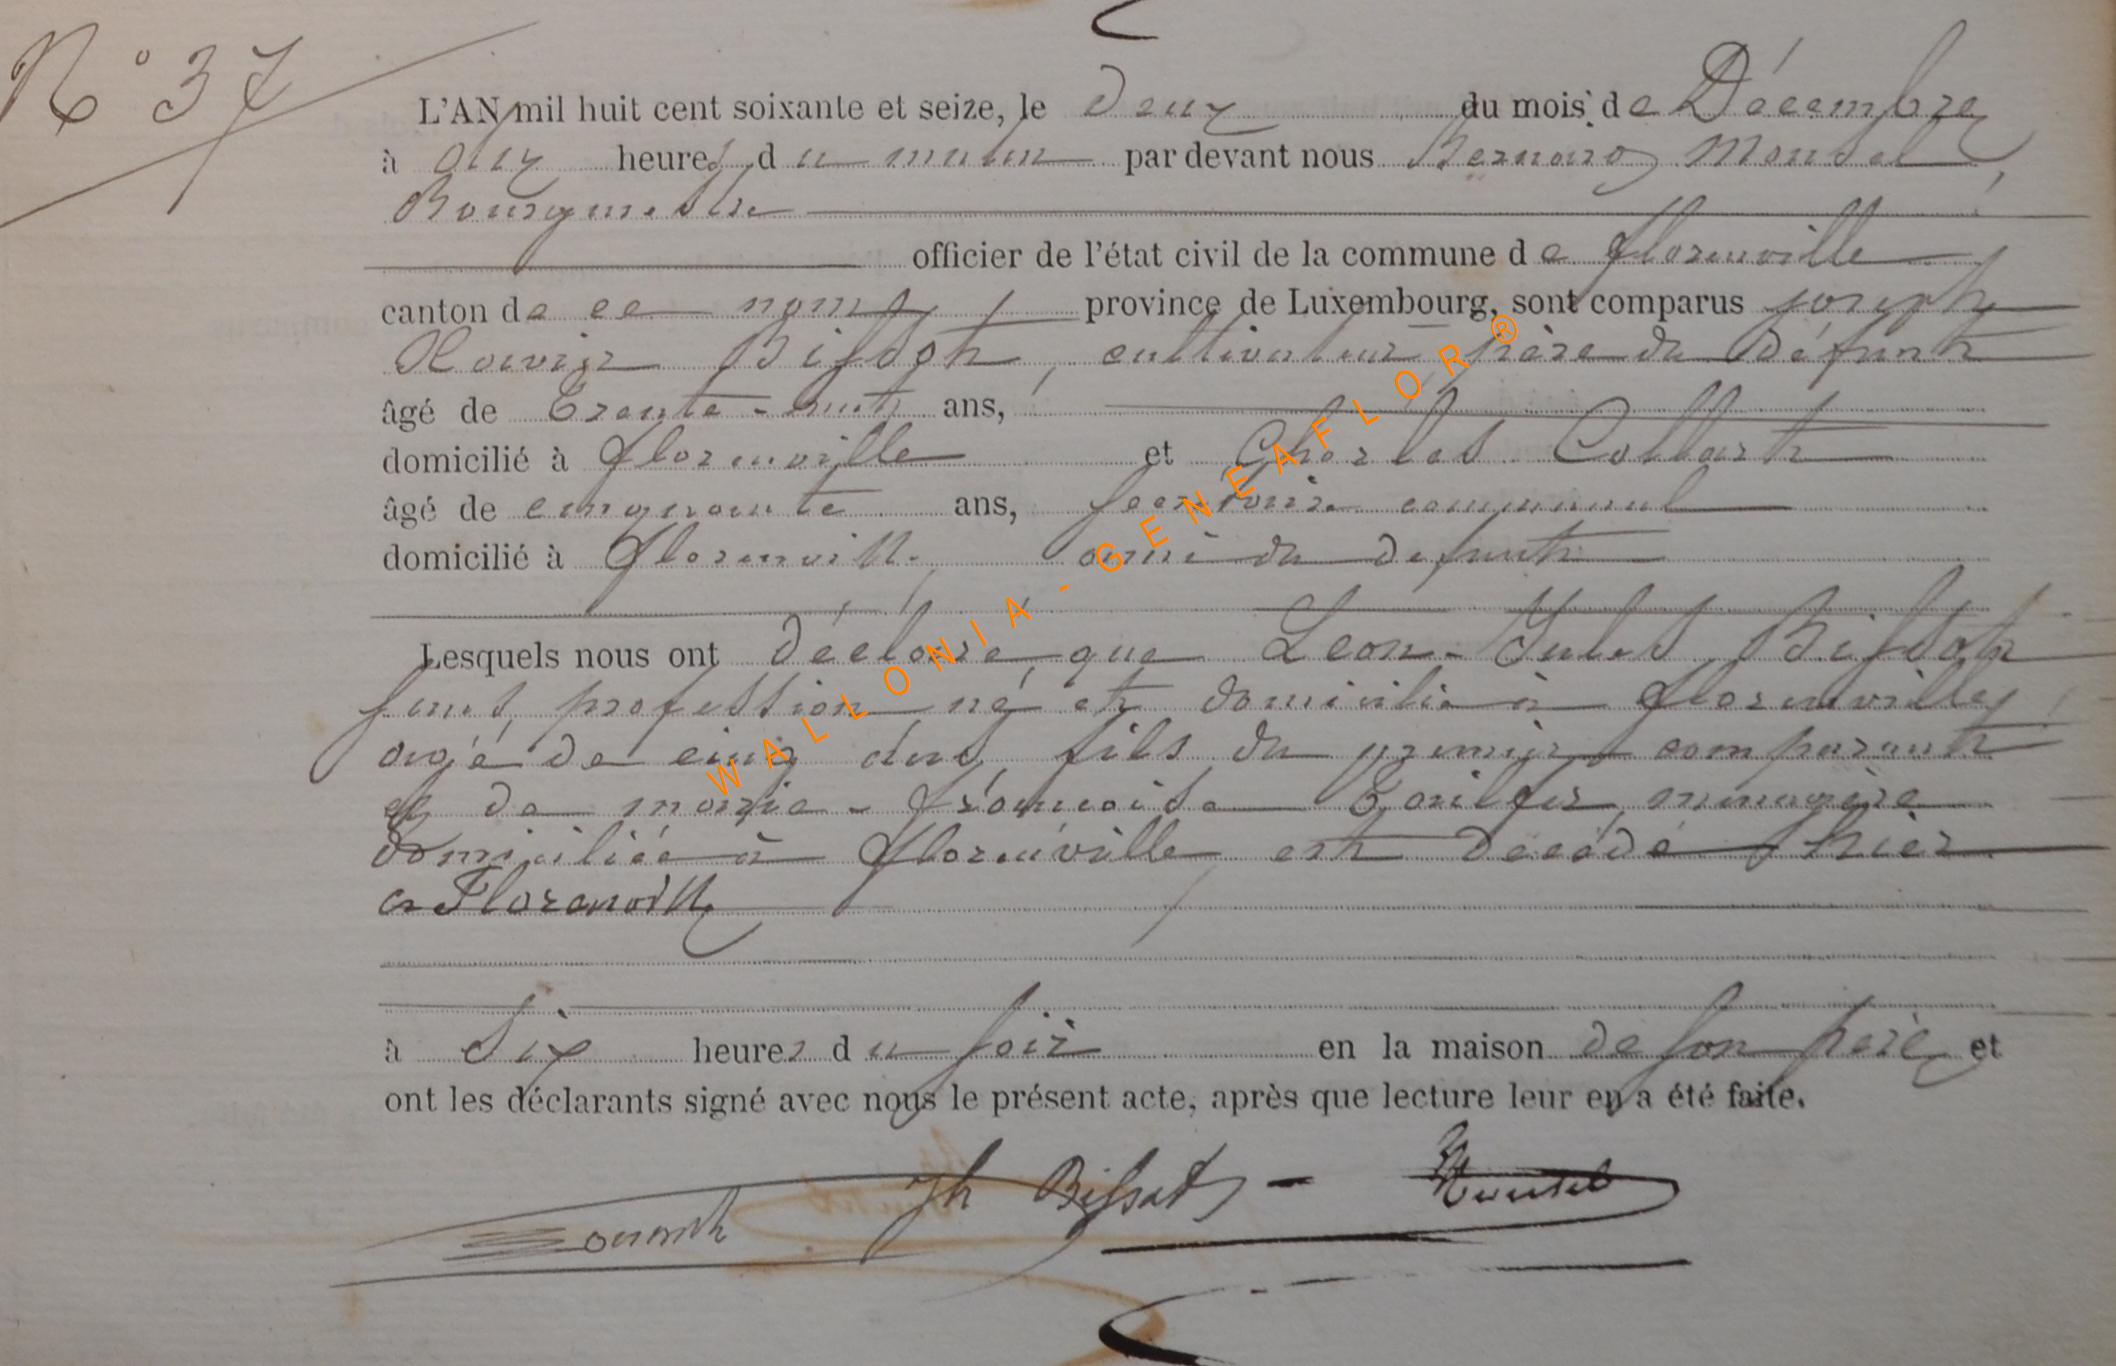 N° 37
L'AN mil huit cent soixante et seize, le deux du mois de Décembre
à heures du matin par devant nous Bernard Mansel,
Bourgmestre
officier de l'état civil de la commune de florenville
canton de ce nom province de Luxembourg, sont comparus joseph
Xavier Bissot, cultivateur, père du défunt
âgé de trente-huit ans,
domicilié à florenville et Charles Collart
âgé de cinquante ans, secrétaire communal
domicilié à florenville, ami du défunt
Lesquels nous ont déclaré que Léon-Jules Bissot
sans profession né et domicilié à florenville
agé de cinq ans, fils du premier comparant
et de marie-françoise ménagère
domiciliée à florenville est décédé hier
a Florenville
à six heures du soir en la maison de son père et
ont les déclarants signé avec nous le présent acte, après que lecture leur en a été faite.
Jh Bissot
WALLONIA-GENEAFLOR®